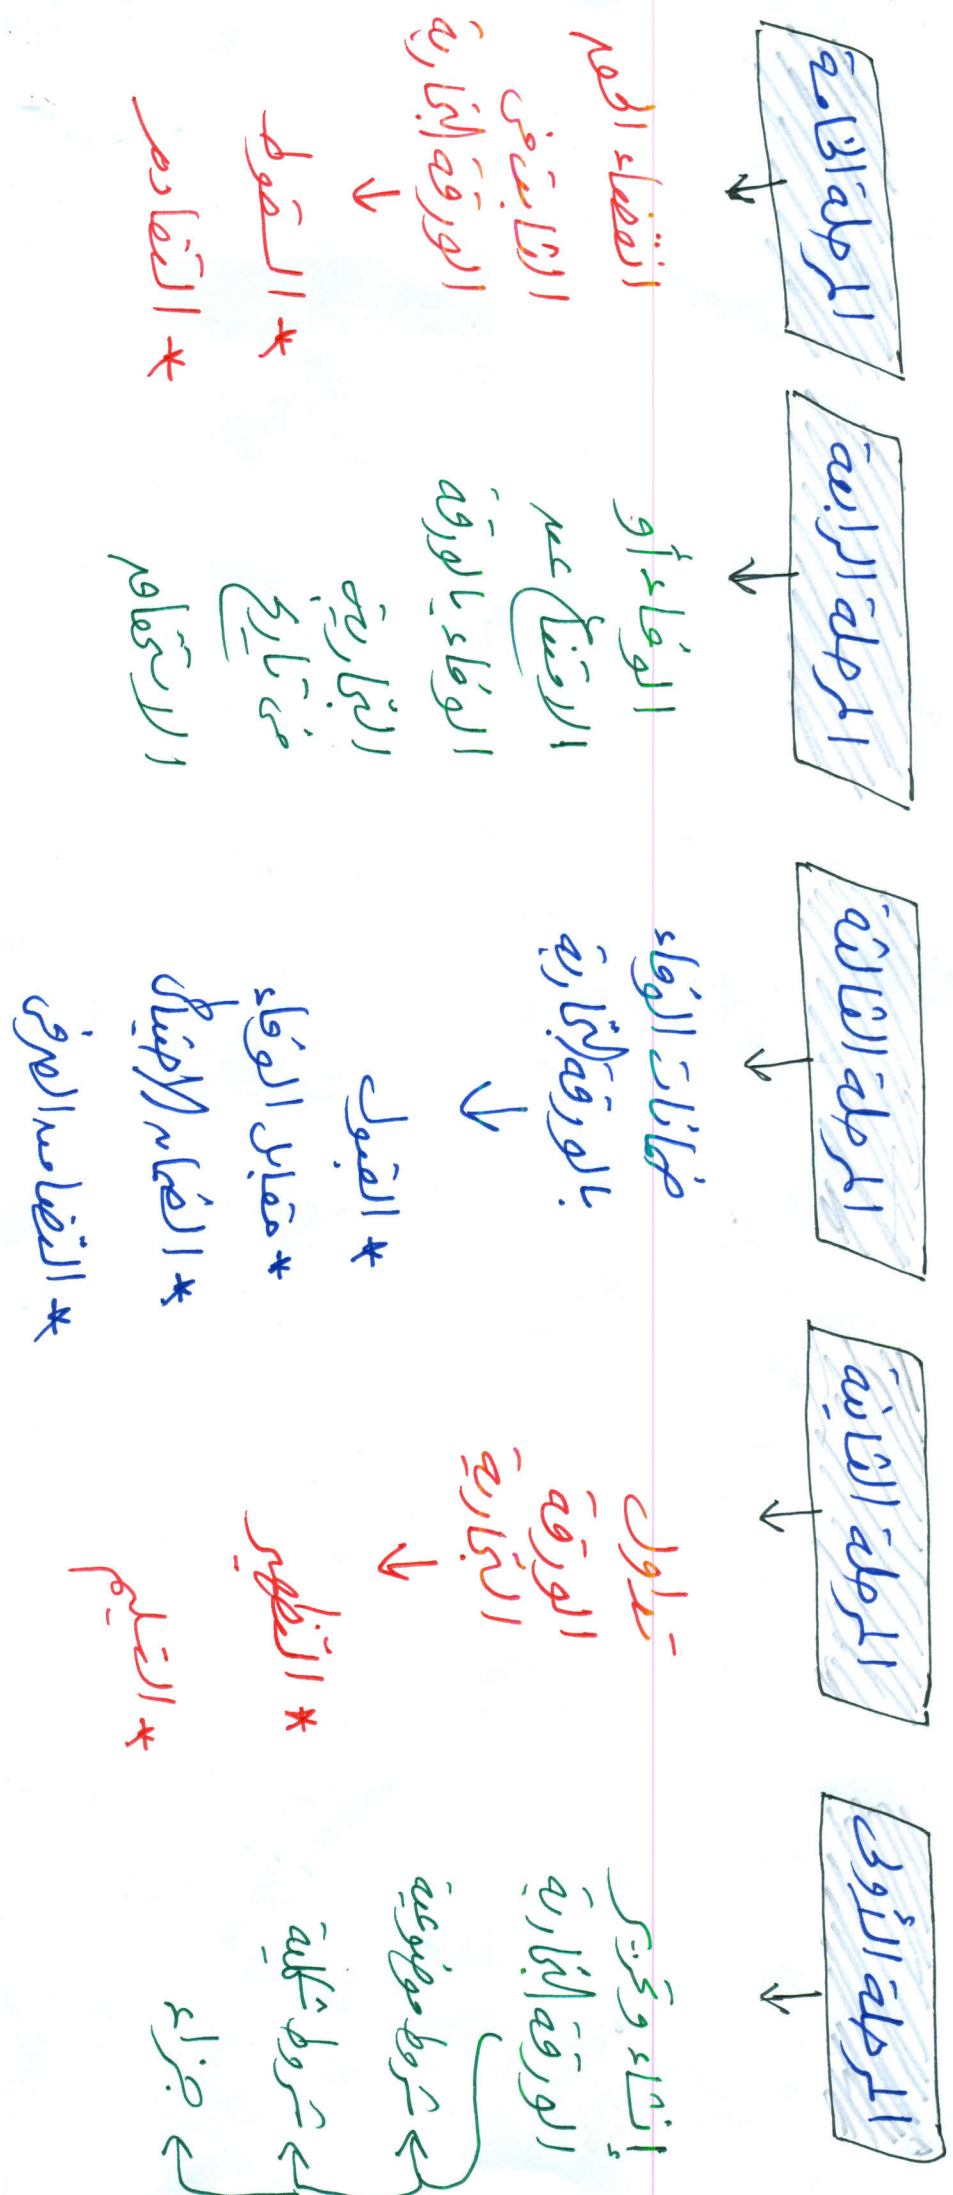 المرحلة الأولى
إنشاء وتحرير
الورقة التجارية
شروط موضوعية
شروط شكلية
جزاء
المرحلة الثانية
تداول
الورقة
التجارية
* التظهير
* التسليم
المرحلة الثالثة
ضمانات الوفاء
بالورقة التجارية
* القبول
* مقابل الوفاء
* الضمان الاحتياطي
* التضامن الصرفي
المرحلة الرابعة
الوفاء أو
الامتناع عن
الوفاء بالورقة
التجارية
في تاريخ
الاستحقاق
المرحلة الخامسة
انقضاء الحق
الثابت في
الورقة التجارية
* السقوط
* التقادم